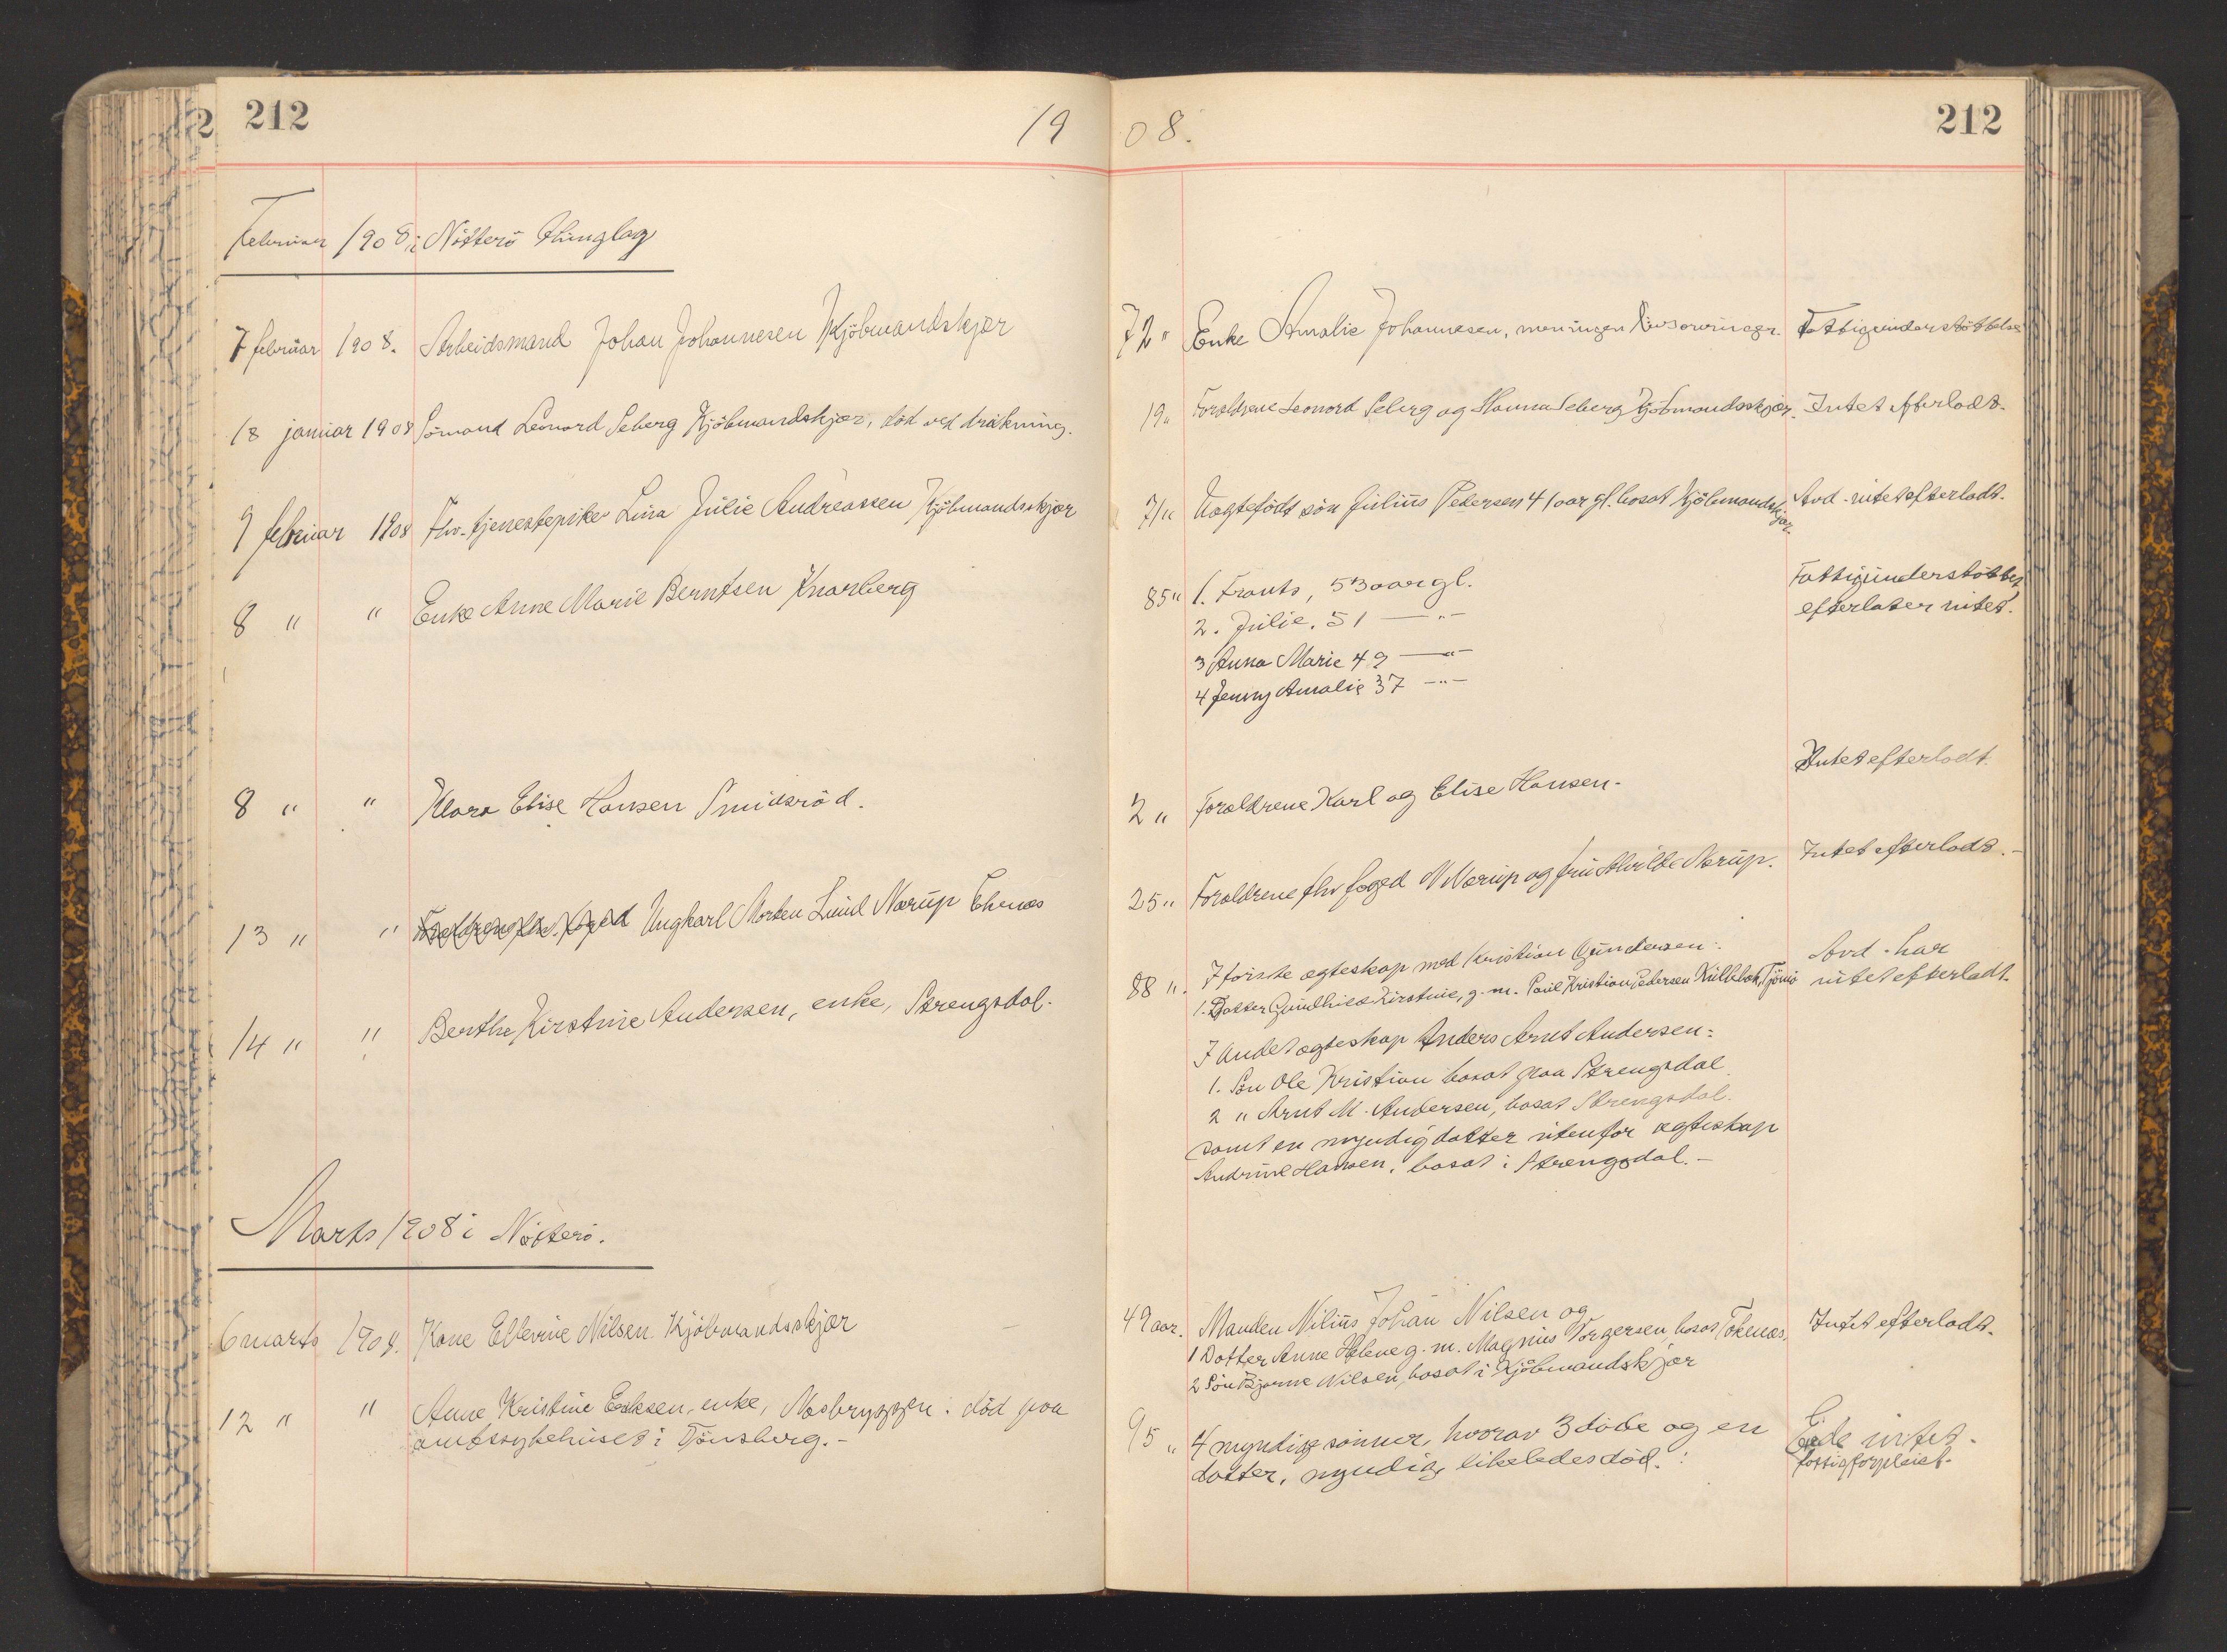 212
19
08.
212
Februar 1908 i Nötterö thinglag
7 februar 1908. Arbeidsmand Johan Johannesen Kjöbmandskjær
72 " Enke Amalie Johannesen, men ingen livsarvinger. Fattigunderstöttelse
18 januar 1908 Sömand Leonard Seberg Kjöbmandskjær, död ved drukning.
19 " Forældrene Leonord Seberg og Hanna Seberg Kjöbmandsskjær. Intet efterladt.
9 februar 1908 Fhv. tjenestepike Lina Julie Andreassen Kjöbmandsskjær
71 " Uægtefödt sön Julius Pedersen 41 aar gl. bosat Kjöbmandskjær. Avd. intet efterladt.
8 " " Enke Anne Marie Berntsen Knarberg
85 " 1. Frants, 53 aar gl.
2. Julie, 51 — " —
3 Anna Marie 49 — " —
4 Jenny Amalie 37 — " —
Fattigunderstöttet
efterlater intet.
8 " " Klara Elise Hansen Smidsröd.
2 " Forældrene Karl og Elise Hansen.
Intet efterladt.
13 " " Forældrene fhv. foged Ungkarl Morten Lund Nærup Ekenæs
25 " Forældrene fhv foged N Nærup og fru Nærup. Intet efterladt.
14 " " Berthe Kirstine Andersen, enke, Strengsdal.
88 ". I förste ægteskap med Kristian Gundersen:
1. Datter Gundhild Kirstine, g. m. Paul Kristian Pedersen Tjömö
I andet ægteskap Anders Arnt Andersen:
1. Sön Ole Kristian bosat paa Strengsdal
2 " Arnt M. Andersen, bosat Strengsdal.
samt en myndig datter utenfor ægteskap
Andrine Hansen, bosat i Strengsdal.
Avd. har
intet efterladt.
Marts 1908 i Nötterö.
6 marts 1908. Kone Ellevine Nilsen Kjöbmandsskjær
49 aar. Manden Nilius Johan Nilsen og
1 Datter Anne Helene g. m. Magnus Torgersen, bosat Tokenæs,
2 Sön Bjarne Nilsen, bosat i Kjöbmandskjær
Intet efterladt.
12 " " Anne Kristine Eriksen, enke, Næsbryggen. död paa
amtssykehuset i Tönsberg.
95 " 4 myndige sönner, hvorav 3 döde og en
datter, myndig likeledes död.
Eiede intet.
fattigforpleiet.